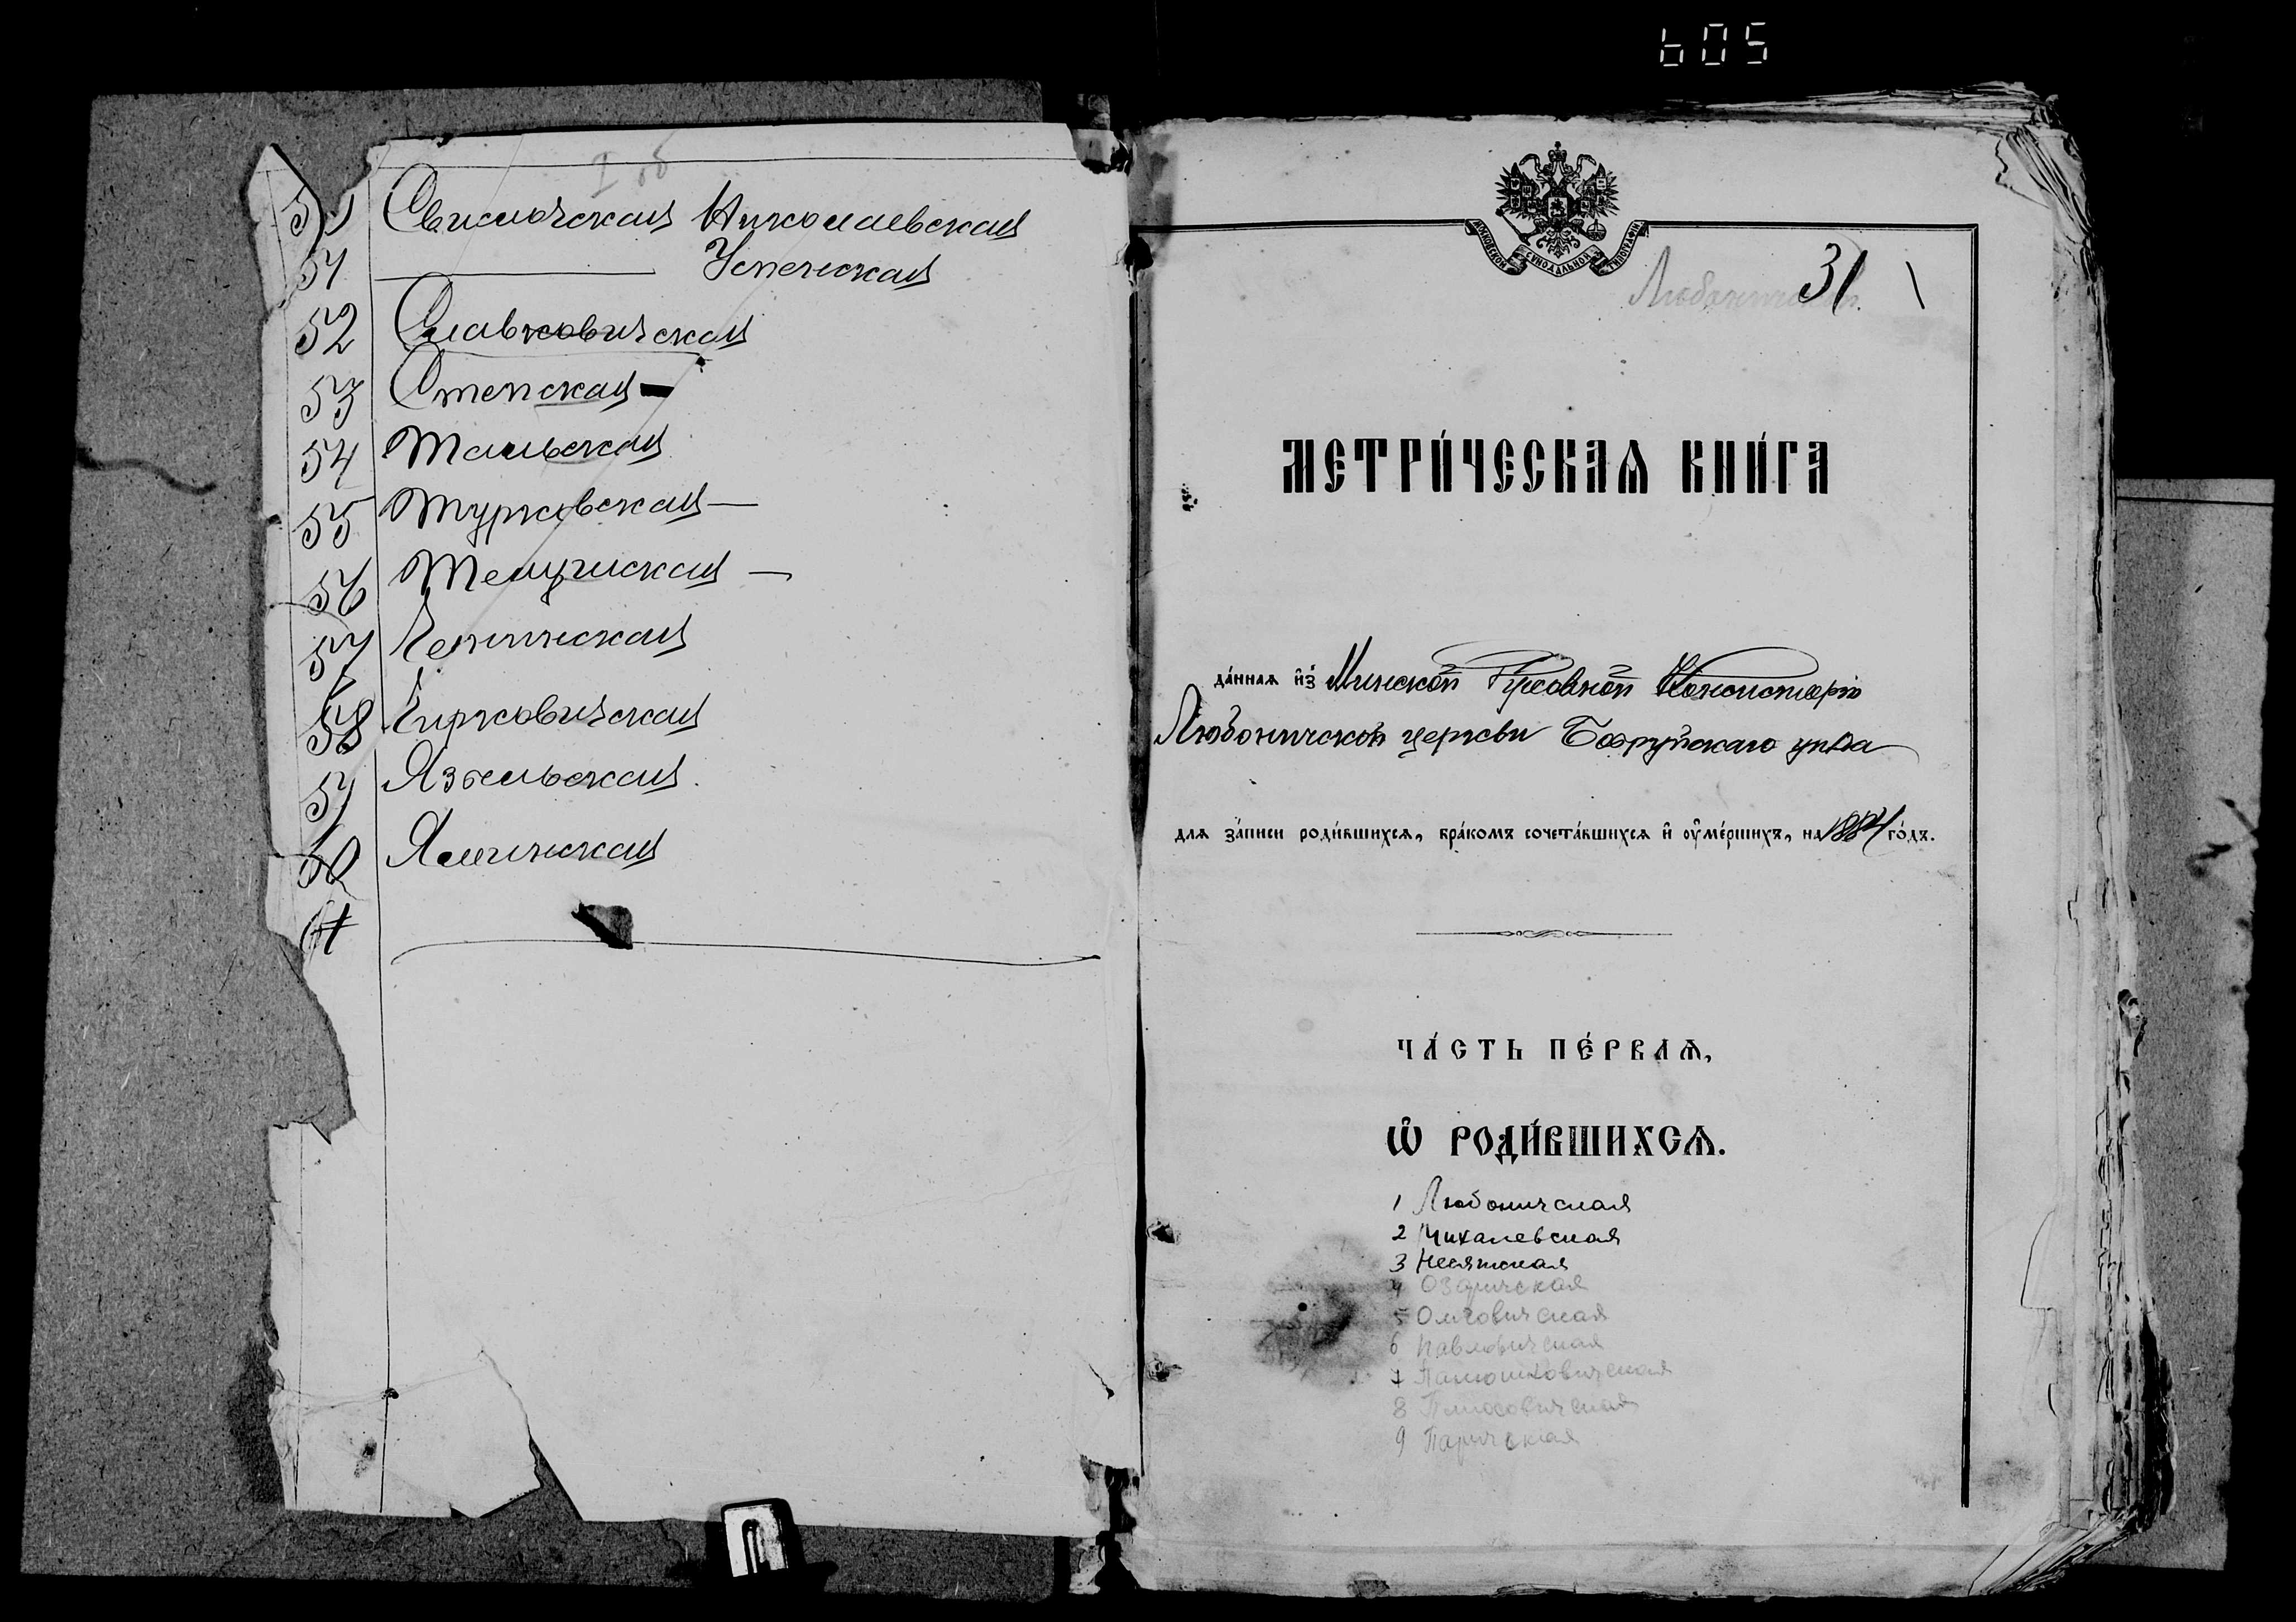 605
I об
50 Свислочская Николаевская
51 Успенская
52 Славковичская
53 Степская
54 Тальская
55 Турковская
56
57
58 Чирковичская
59 Язвильская
60 Ясенская
61
МОСКОВСКОЙ СѴНОДАЛЬНОЙ ТИПОГРАФІИ
31
1
МЕТРИ́ЧЕСКАѦ КНИ́ГА
да́нная и҆з̾ Минской Духовной Консисторіи
Любоничской церкви Бобруйскаго уѣзда
для за́писи роди́вшихся, бра́комъ сочета́вшихся и҆ оу҆ме́ршихъ, на 1884 го́дъ.
ЧА́СТЬ ПЕ́РВАѦ,
Ѽ РОДИ́ВШИХСѦ.
1 Любоничская
2 Михалевская
3 Несятская
4 Озаричская
5 Олговичская
6 Павловичская
7 Панюшковичская
8 Плюсовичская
9 Паричская